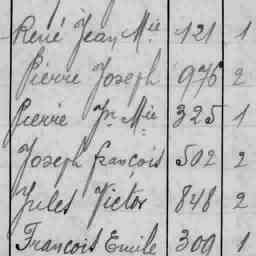 René Jean Mie 121 1
Pierre Joseph 976 2
Pierre Jn Mie 325 1
Joseph françois 502 2
Jules Victor 848 2
François Emile 309 1